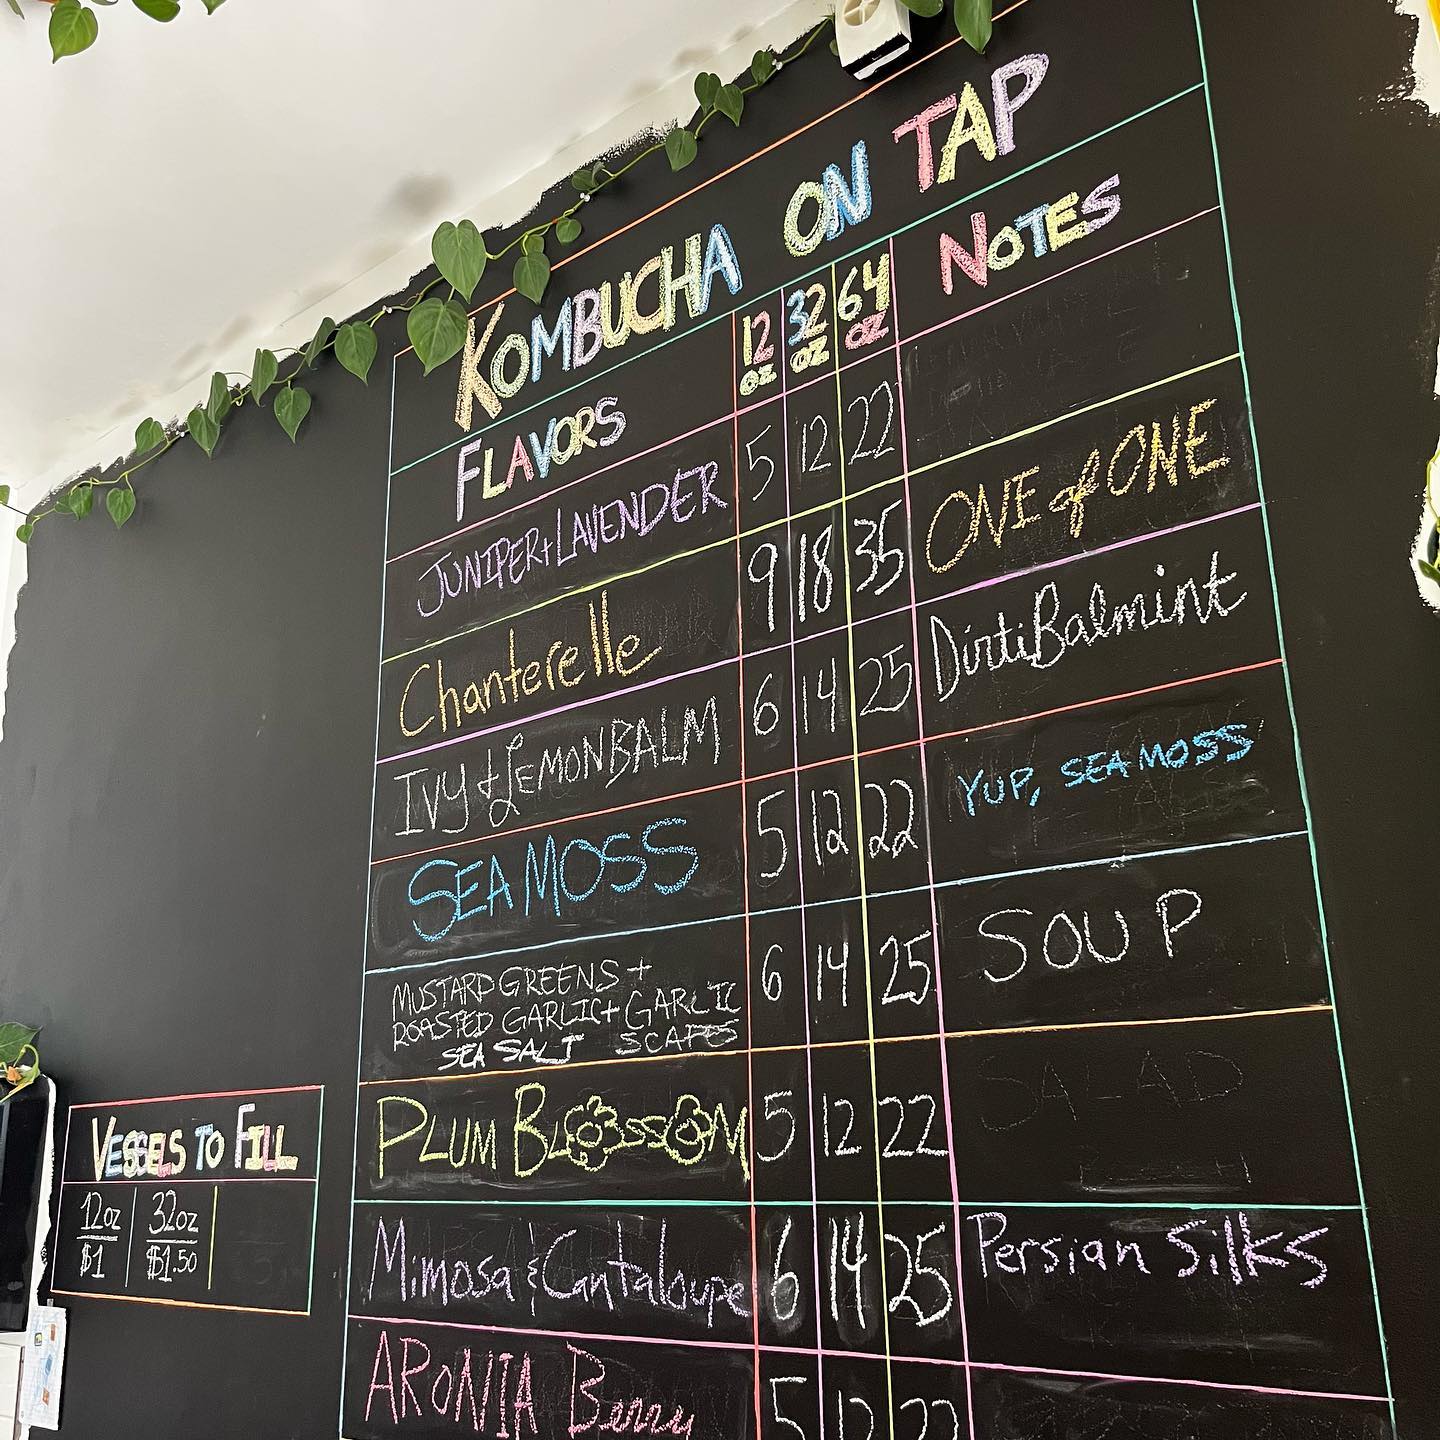 KOMBUCHA ON TAP
FLAVORS 12 OZ 32 OZ 64 OZ NOTES
JUNIPER + LAVENDER 5 12 22
Chanterelle 9 18 35 ONE of ONE
IVY & LEMONBALM 6 14 25 DirtiBalmint
SEA MOSS 5 12 22 YUP, SEA MOSS
MUSTARD GREENS +
ROASTED GARLIC + GARLIC
SEA SALT SCAPES 6 14 25 SOUP
PLUM BLOSSOM 5 12 22 SALAD
Mimosa & Cantaloupe 6 14 25 Persian Silks
ARONIA Berry 5 12 22
VESSELS TO FILL
12oz 32oz
$1 $1.50